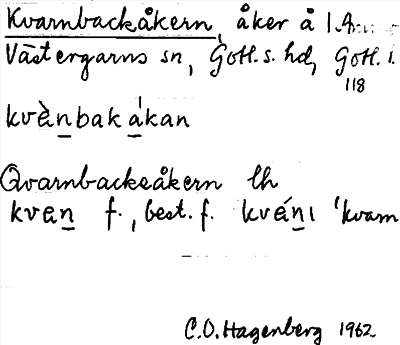 Kvarnbackåkern, åker å 1
Västergarns sn, Gotl. s. hd, Gotl. l.
118
kvὲn̲bak a̲̍kan
Qvarnbackeåkern lh
kvɛn̲ f., best. f. kvέn̲ı 'kvarn
C.O. Hagenberg 1962